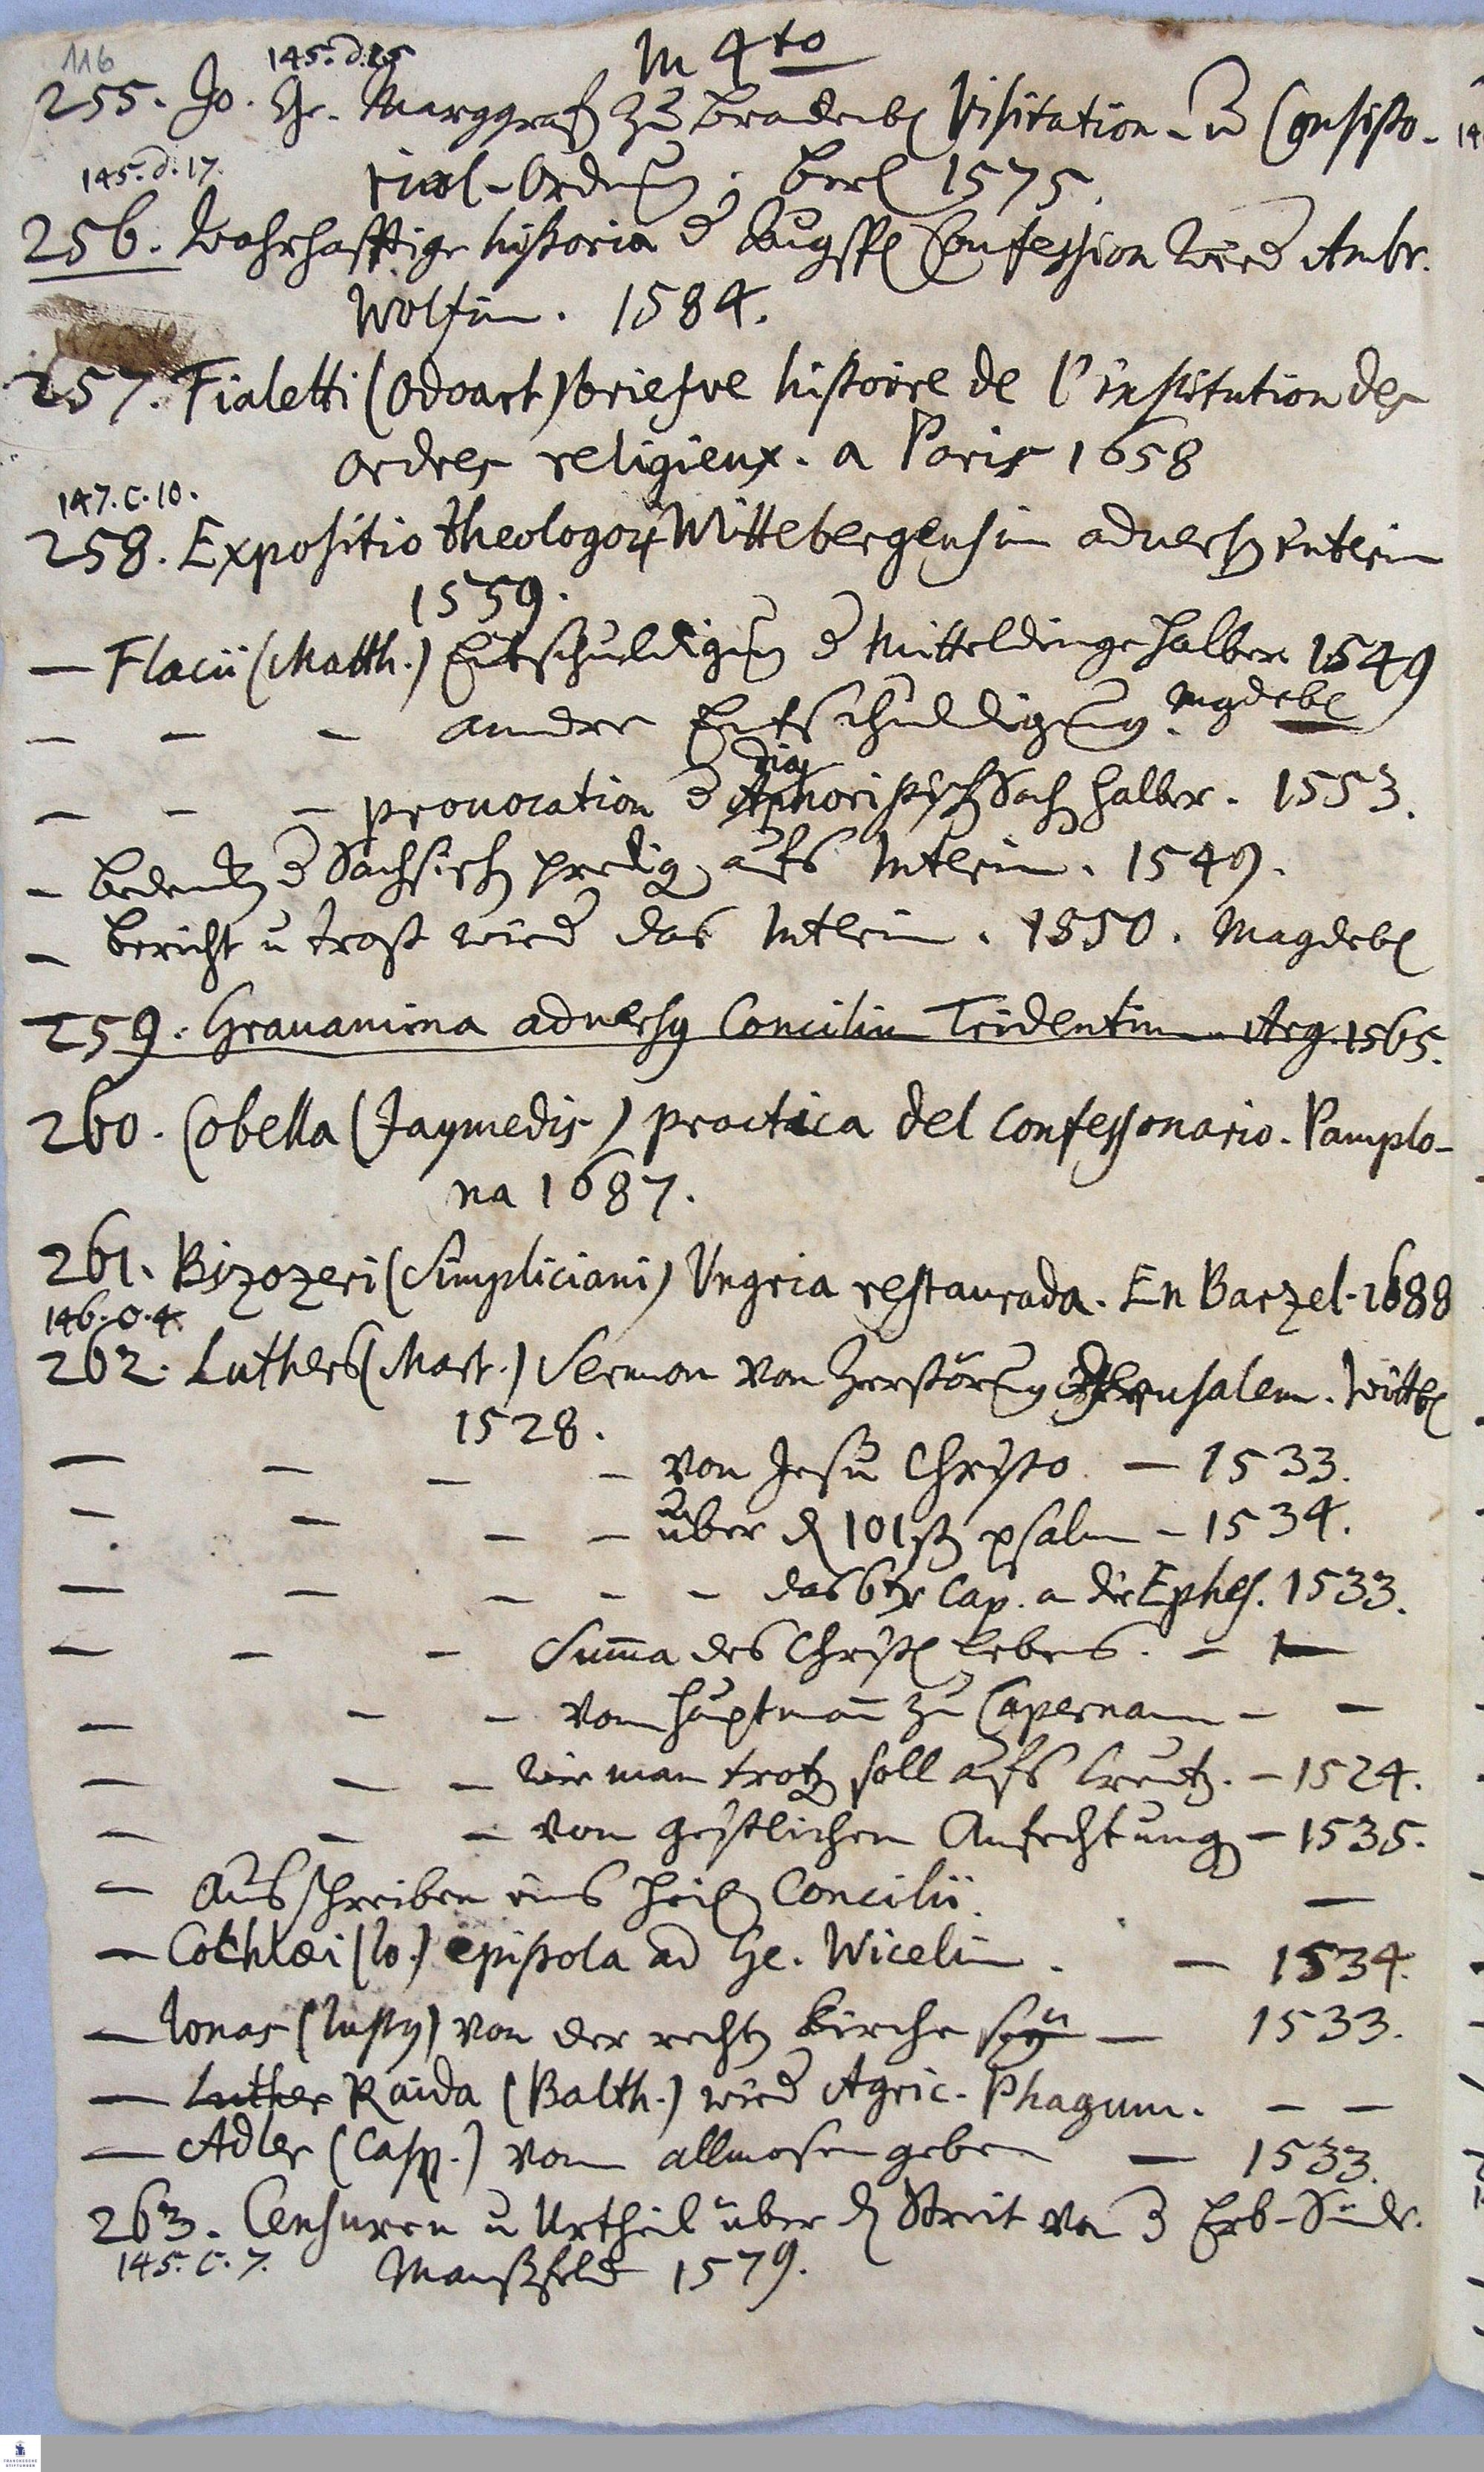 116
145.d.25
In 4to
255. Jo. Ge. Marggraf zu Brandenb Visitation- u Consisto-
145.d.17.
rial-Ordnung. Berl 1575.
256. Wahrhafftige historia d Augsp Confession wied Ambr.
Wolfium. 1584.
257. Fialetti (Odoart) briefve histoire de l'institution des
ordres religieux. a Paris 1658
147.c.10.
258. Expositio theologor Wittebergensium adversq Interim
1559.
— Flacii (Matth.) Entschuldigung d Mitteldinge halber 1549
— — — andre Entschuldigung. Mgdeb —
— — — provocation d Aphoristisch Sach halber. 1553.
— bedenck d Sächsisch predig aufs Interim. 1549.
— bericht u trost wied das Interim. 1550. Magdeb
259. Gravamina adversq Concilium Tridentinum. Arg. 1565.
260. Cobella (Jaymedis) practica del confessonario. Pamplo-
na 1687.
261. Bizozeri (Simpliciani) Ungria restaurada. En Barzel. 1688
146.o.4.
262. Luthers (Mart.) Sermon von Zerstörung Jerusalem. Witteb
1528.
— — — — von Jesu Christo — 1533.
— — — — über d 101st psalm — 1534.
— — — — — das 6te Cap. a die Ephes. 1533.
— — — Summa des Christl lebens. — —
— — — vom hauptmann zu Capernaum — —
— — — wie man trotz soll aufs Creutz. — 1524.
— — — von geistlichen Anfechtung — 1535.
— Ausschreiben eins heil Concilii. —
— Cochlaei (Io.) epistola ad Ge. Wicelium. — 1534.
— Jonas (Justq) von der recht Kirche — 1533.
— Luther Raida (Balth.) wied Agric. Phagum. — —
— Adler (Casp.) vom allmosen geben — 1533.
263. Censuren u Urtheil über d Streit von d Erb-Sünde.
145.c.7.
Manßfeld 1579.